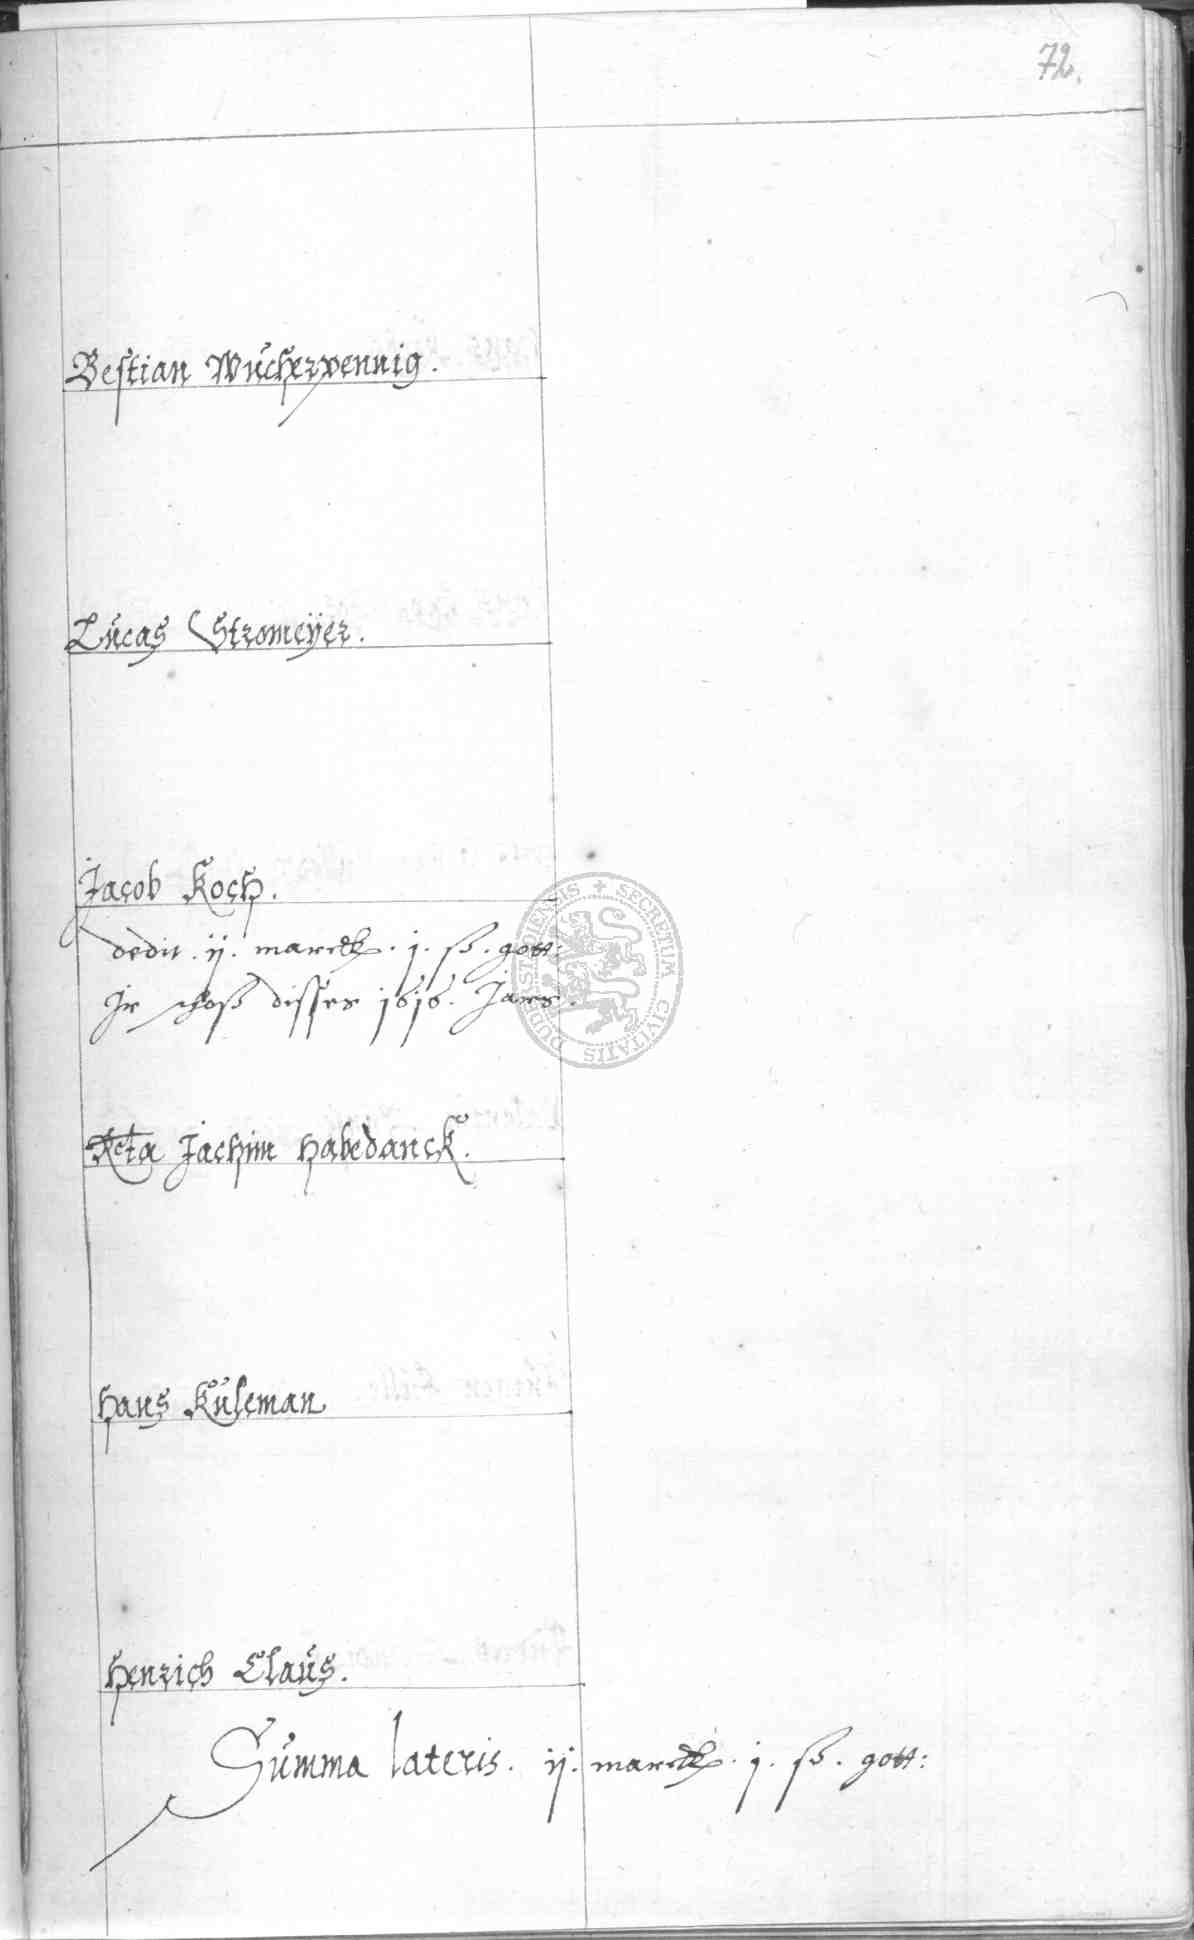 72.
Bestian Wucherpennig.
Lucas Stromeÿer.
Jacob Koch.
dedit . ij . marck . j . ß . gott:
Ir schoß disses 1616. Jars.
Rcta Jachim Habedanck.
Hans Kůleman
Henrich Claus.
Summa lateris . ij . marck . j . ß . gott:
SECRETUM CIVITATIS DUDERSTADIENSIS